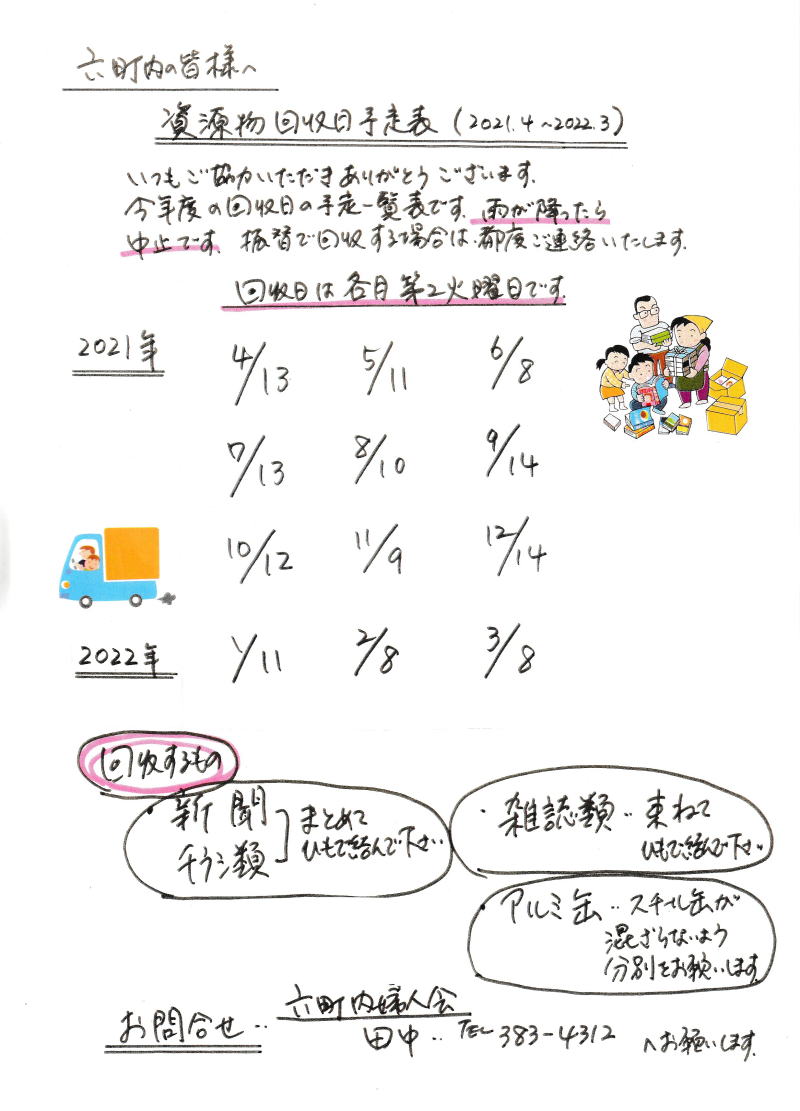 六町内の皆様へ
資源物回収日予定表(2021.4~2022.3)
いつもご協力いただきありがとうございます。
今年度の回収日の予定一覧表です。雨が降ったら
中止です。振替で回収する場合は、都度ご連絡いたします。
回収日は各月第2火曜日です。
2021年 4/13 5/11 6/8
7/13 8/10 9/14
10/12 11/9 12/14
2022年 1/11 2/8 3/8
回収するもの
・新聞 チラシ類 まとめて ひもで結んで下さい
・雑誌類‥束ねて
ひもで結んで下さい
・アルミ缶‥スチール缶が
混ざらないよう
分別をお願いします
お問合せ‥ 六町内婦人会
田中‥TEL 383-4312 へお願いします。